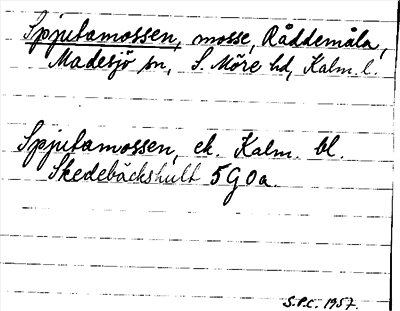 Spjutamossen, mosse, Råddemåla,
Madesjö sn, S. Möre hd, Kalm. l.
Spjutamossen, ek. Kalm. bl.
Skedebäckshult 5G0a.
S.P.C. 1957.